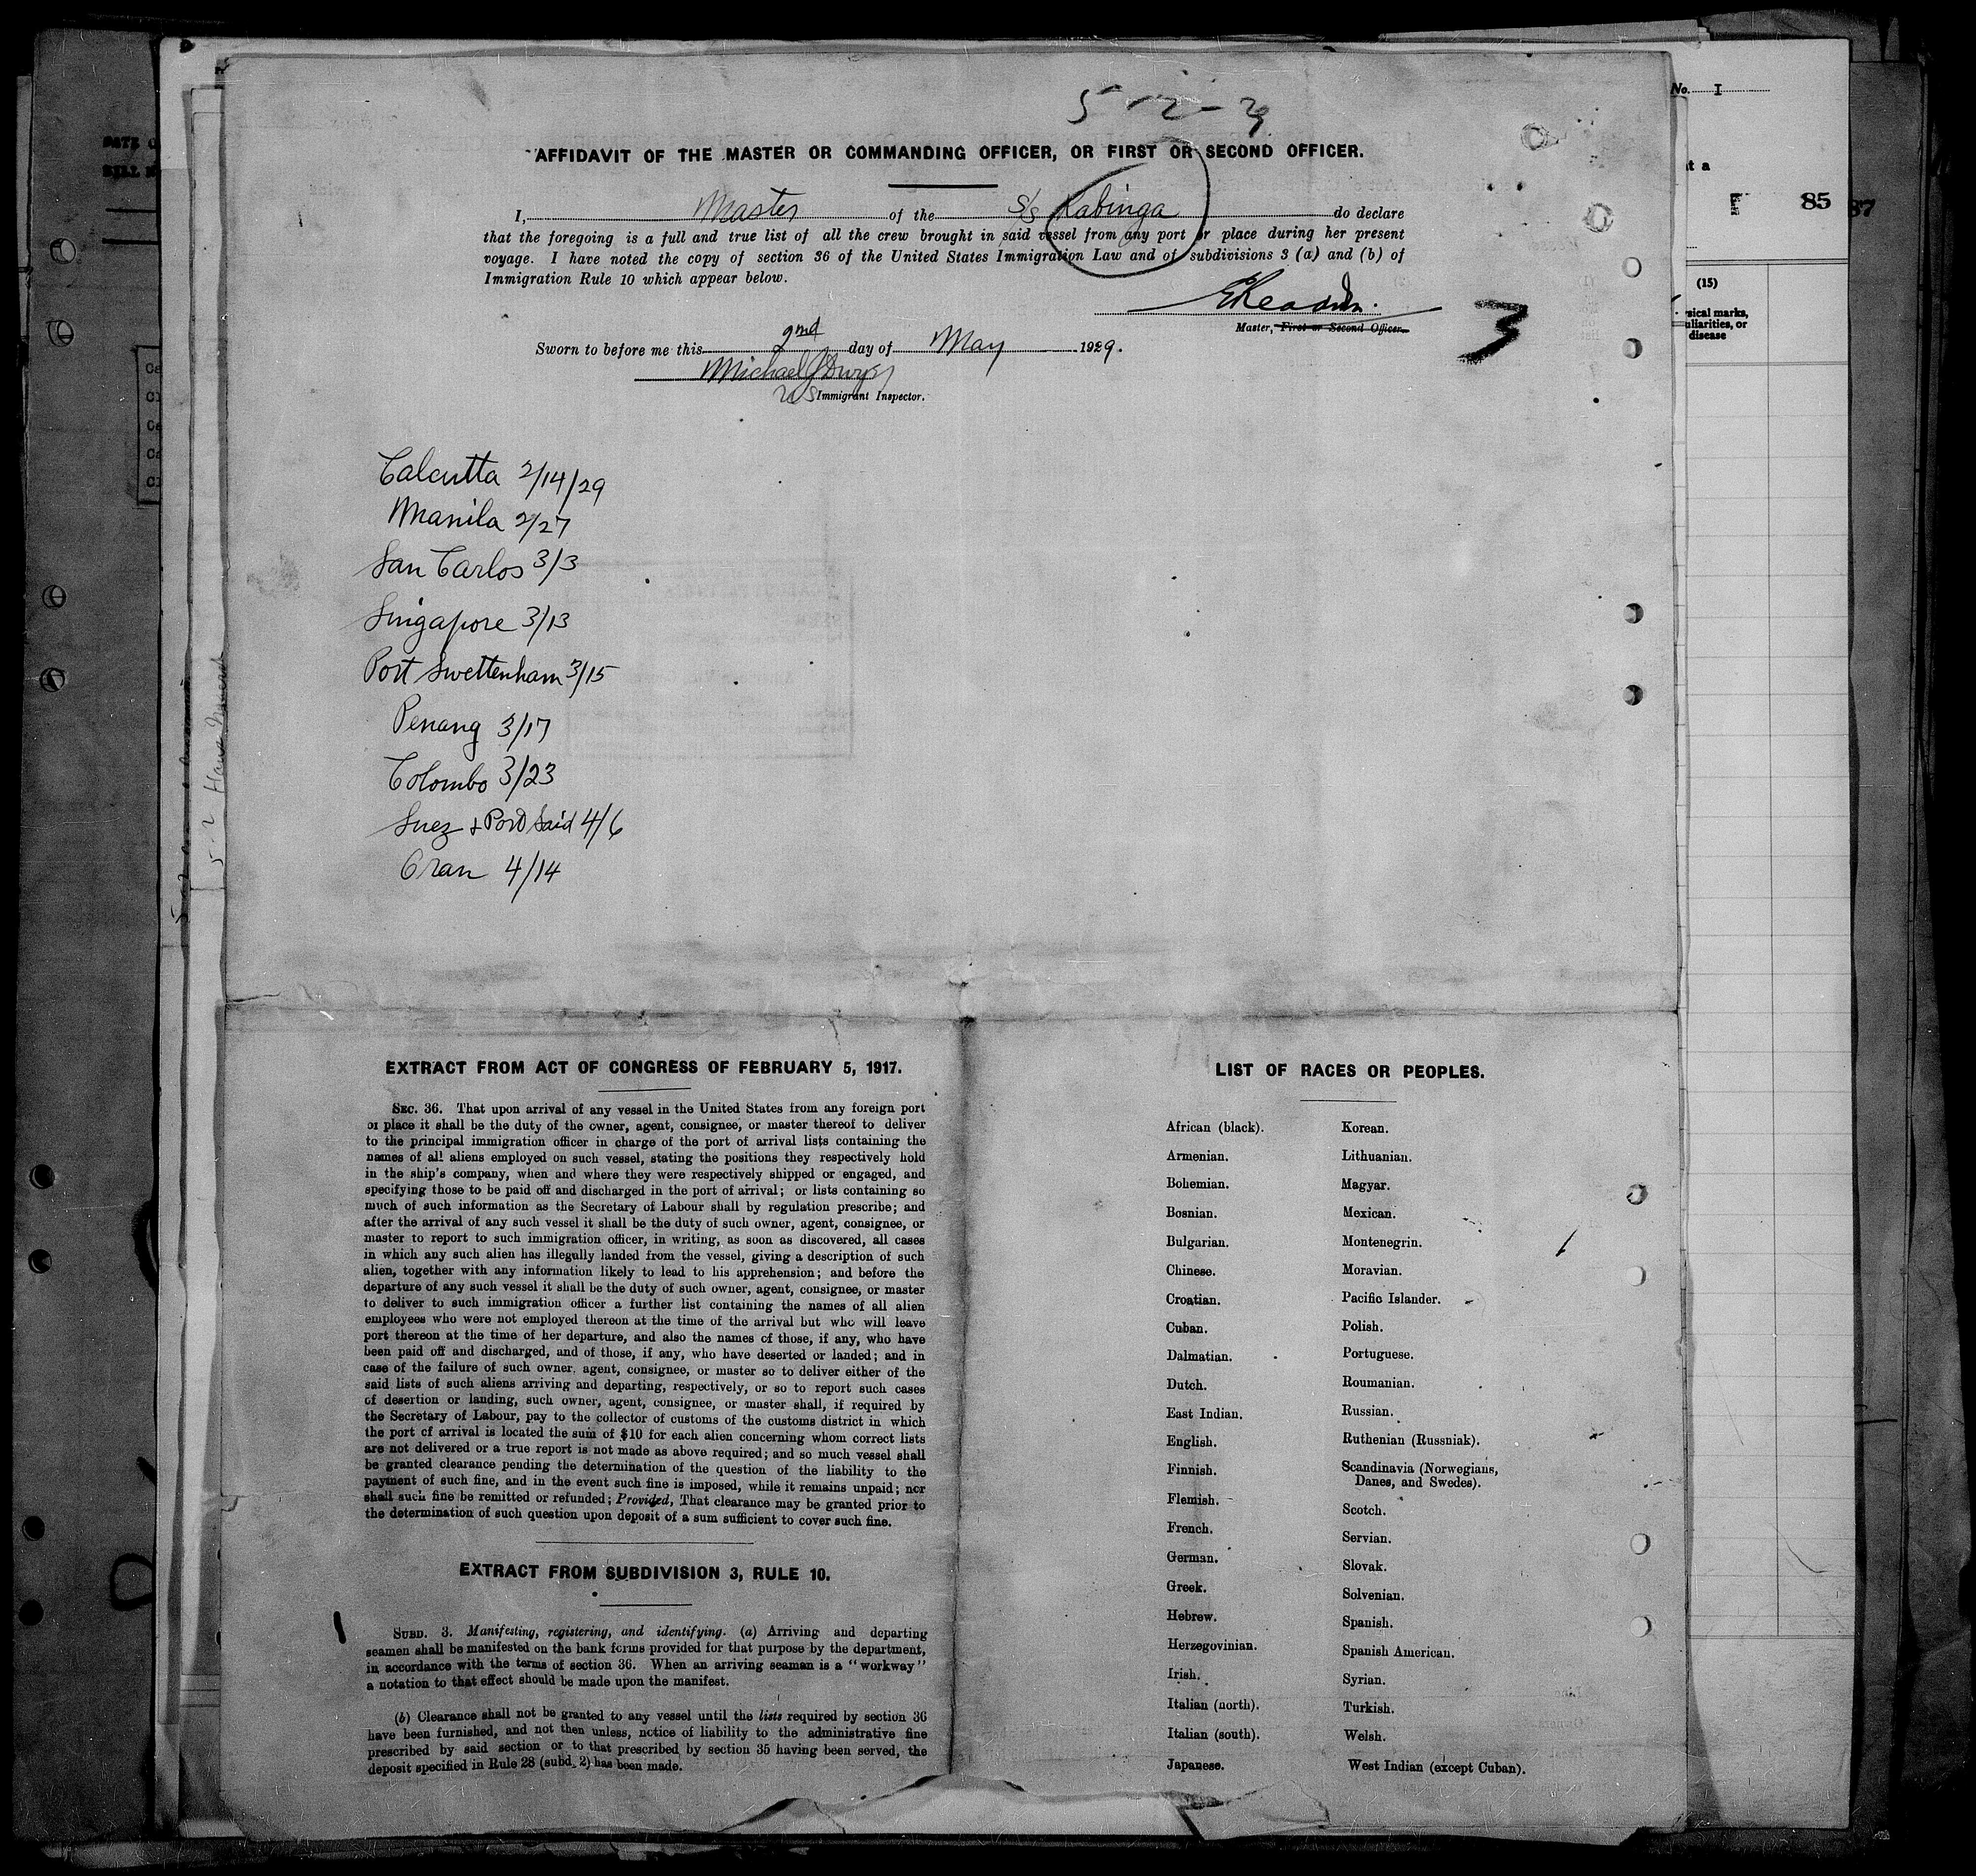 5-2-29
AFFIDAVIT OF THE MASTER OR COMMANDING OFFICER, OR FIRST OR SECOND OFFICER.
I, Master of the S/S Kabinga do declare
that the foregoing is a full and true list of all the crew brought in said vessel from any port or place during her present
voyage. I have noted the copy of section 36 of the United States Immigration Law and of subdivisions 3 (a) and (b) of
Immigration Rule 10 which appear below.
Master, First or Second Officer.
3
Sworn to before me this 2nd day of May 1929.
Michael
US Immigrant Inspector.
Calcutta 2/14/29
Manila 2/27
San Carlos 3/3
Singapore 3/13
Port Swettenham 3/15
Penang 3/17
Colombo 3/23
Suez & Port Said 4/6
Oran 4/14
EXTRACT FROM ACT OF CONGRESS OF FEBRUARY 5, 1917.
SEC. 36. That upon arrival of any vessel in the United States from any foreign port
or place it shall be the duty of the owner, agent, consignee, or master thereof to deliver
to the principal immigration officer in charge of the port of arrival lists containing the
names of all aliens employed on such vessel, stating the positions they respectively hold
in the ship's company, when and where they were respectively shipped or engaged, and
specifying those to be paid off and discharged in the port of arrival; or lists containing so
much of such information as the Secretary of Labour shall by regulation prescribe; and
after the arrival of any such vessel it shall be the duty of such owner, agent, consignee, or
master to report to such immigration officer, in writing, as soon as discovered, all cases
in which any such alien has illegally landed from the vessel, giving a description of such
alien, together with any information likely to lead to his apprehension; and before the
departure of any such vessel it shall be the duty of such owner, agent, consignee, or master
to deliver to such immigration officer a further list containing the names of all alien
employees who were not employed thereon at the time of the arrival but who will leave
port thereon at the time of her departure, and also the names of those, if any, who have
been paid off and discharged, and of those, if any, who have deserted or landed; and in
case of the failure of such owner, agent, consignee, or master so to deliver either of the
said lists of such aliens arriving and departing, respectively, or so to report such cases
of desertion or landing, such owner, agent, consignee, or master shall, if required by
the Secretary of Labour, pay to the collector of customs of the customs district in which
the port of arrival is located the sum of $10 for each alien concerning whom correct lists
are not delivered or a true report is not made as above required; and so much vessel shall
be granted clearance pending the determination of the question of the liability to the
payment of such fine, and in the event such fine is imposed, while it remains unpaid; nor
shall such fine be remitted or refunded; Provided, That clearance may be granted prior to
the determination of such question upon deposit of a sum sufficient to cover such fine.
EXTRACT FROM SUBDIVISION 3, RULE 10.
SUBD. 3. Manifesting, registering, and identifying. (a) Arriving and departing
seamen shall be manifested on the bank forms provided for that purpose by the department,
in accordance with the terms of section 36. When an arriving seaman is a "workway"
a notation to that effect should be made upon the manifest.
(b) Clearance shall not be granted to any vessel until the lists required by section 36
have been furnished, and not then unless, notice of liability to the administrative fine
prescribed by said section or to that prescribed by section 35 having been served, the
deposit specified in Rule 28 (subd. 2) has been made.
LIST OF RACES OR PEOPLES.
African (black).
Armenian.
Bohemian.
Bosnian.
Bulgarian.
Chinese.
Croatian.
Cuban.
Dalmatian.
Dutch.
East Indian.
English.
Finnish.
Flemish.
French.
German.
Greek.
Hebrew.
Herzegovinian.
Irish.
Italian (north).
Italian (south).
Japanese.
Korean.
Lithuanian.
Magyar.
Mexican.
Montenegrin.
Moravian.
Pacific Islander.
Polish.
Portuguese.
Roumanian.
Russian.
Ruthenian (Russniak).
Scandinavia (Norwegians,
Danes, and Swedes).
Scotch.
Servian.
Slovak.
Solvenian.
Spanish.
Spanish American.
Syrian.
Turkish.
Welsh.
West Indian (except Cuban).
No. I
85
87
(15)
marks,
or
disease